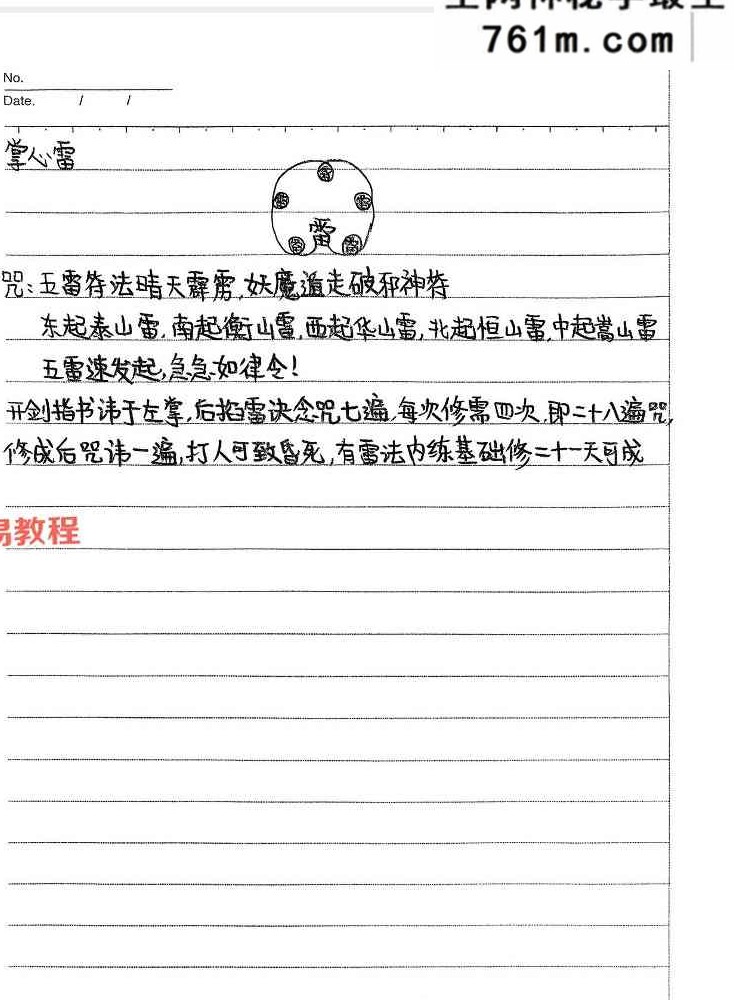 761m.com
No.
Date. / /
掌心雷
雷
咒:五雷符法晴天霹雳,妖魔遁走破邪神符
东起泰山雷,南起衡山雷,西起华山雷,北起恒山雷,中起嵩山雷
五雷速发起,急急如律令!
开剑指书讳于左掌,后掐雷决念咒七遍,每次修需四次,即二十八遍咒,
修成后咒讳一遍,打人可致昏死,有雷法内练基础修二十一天可成
易教程